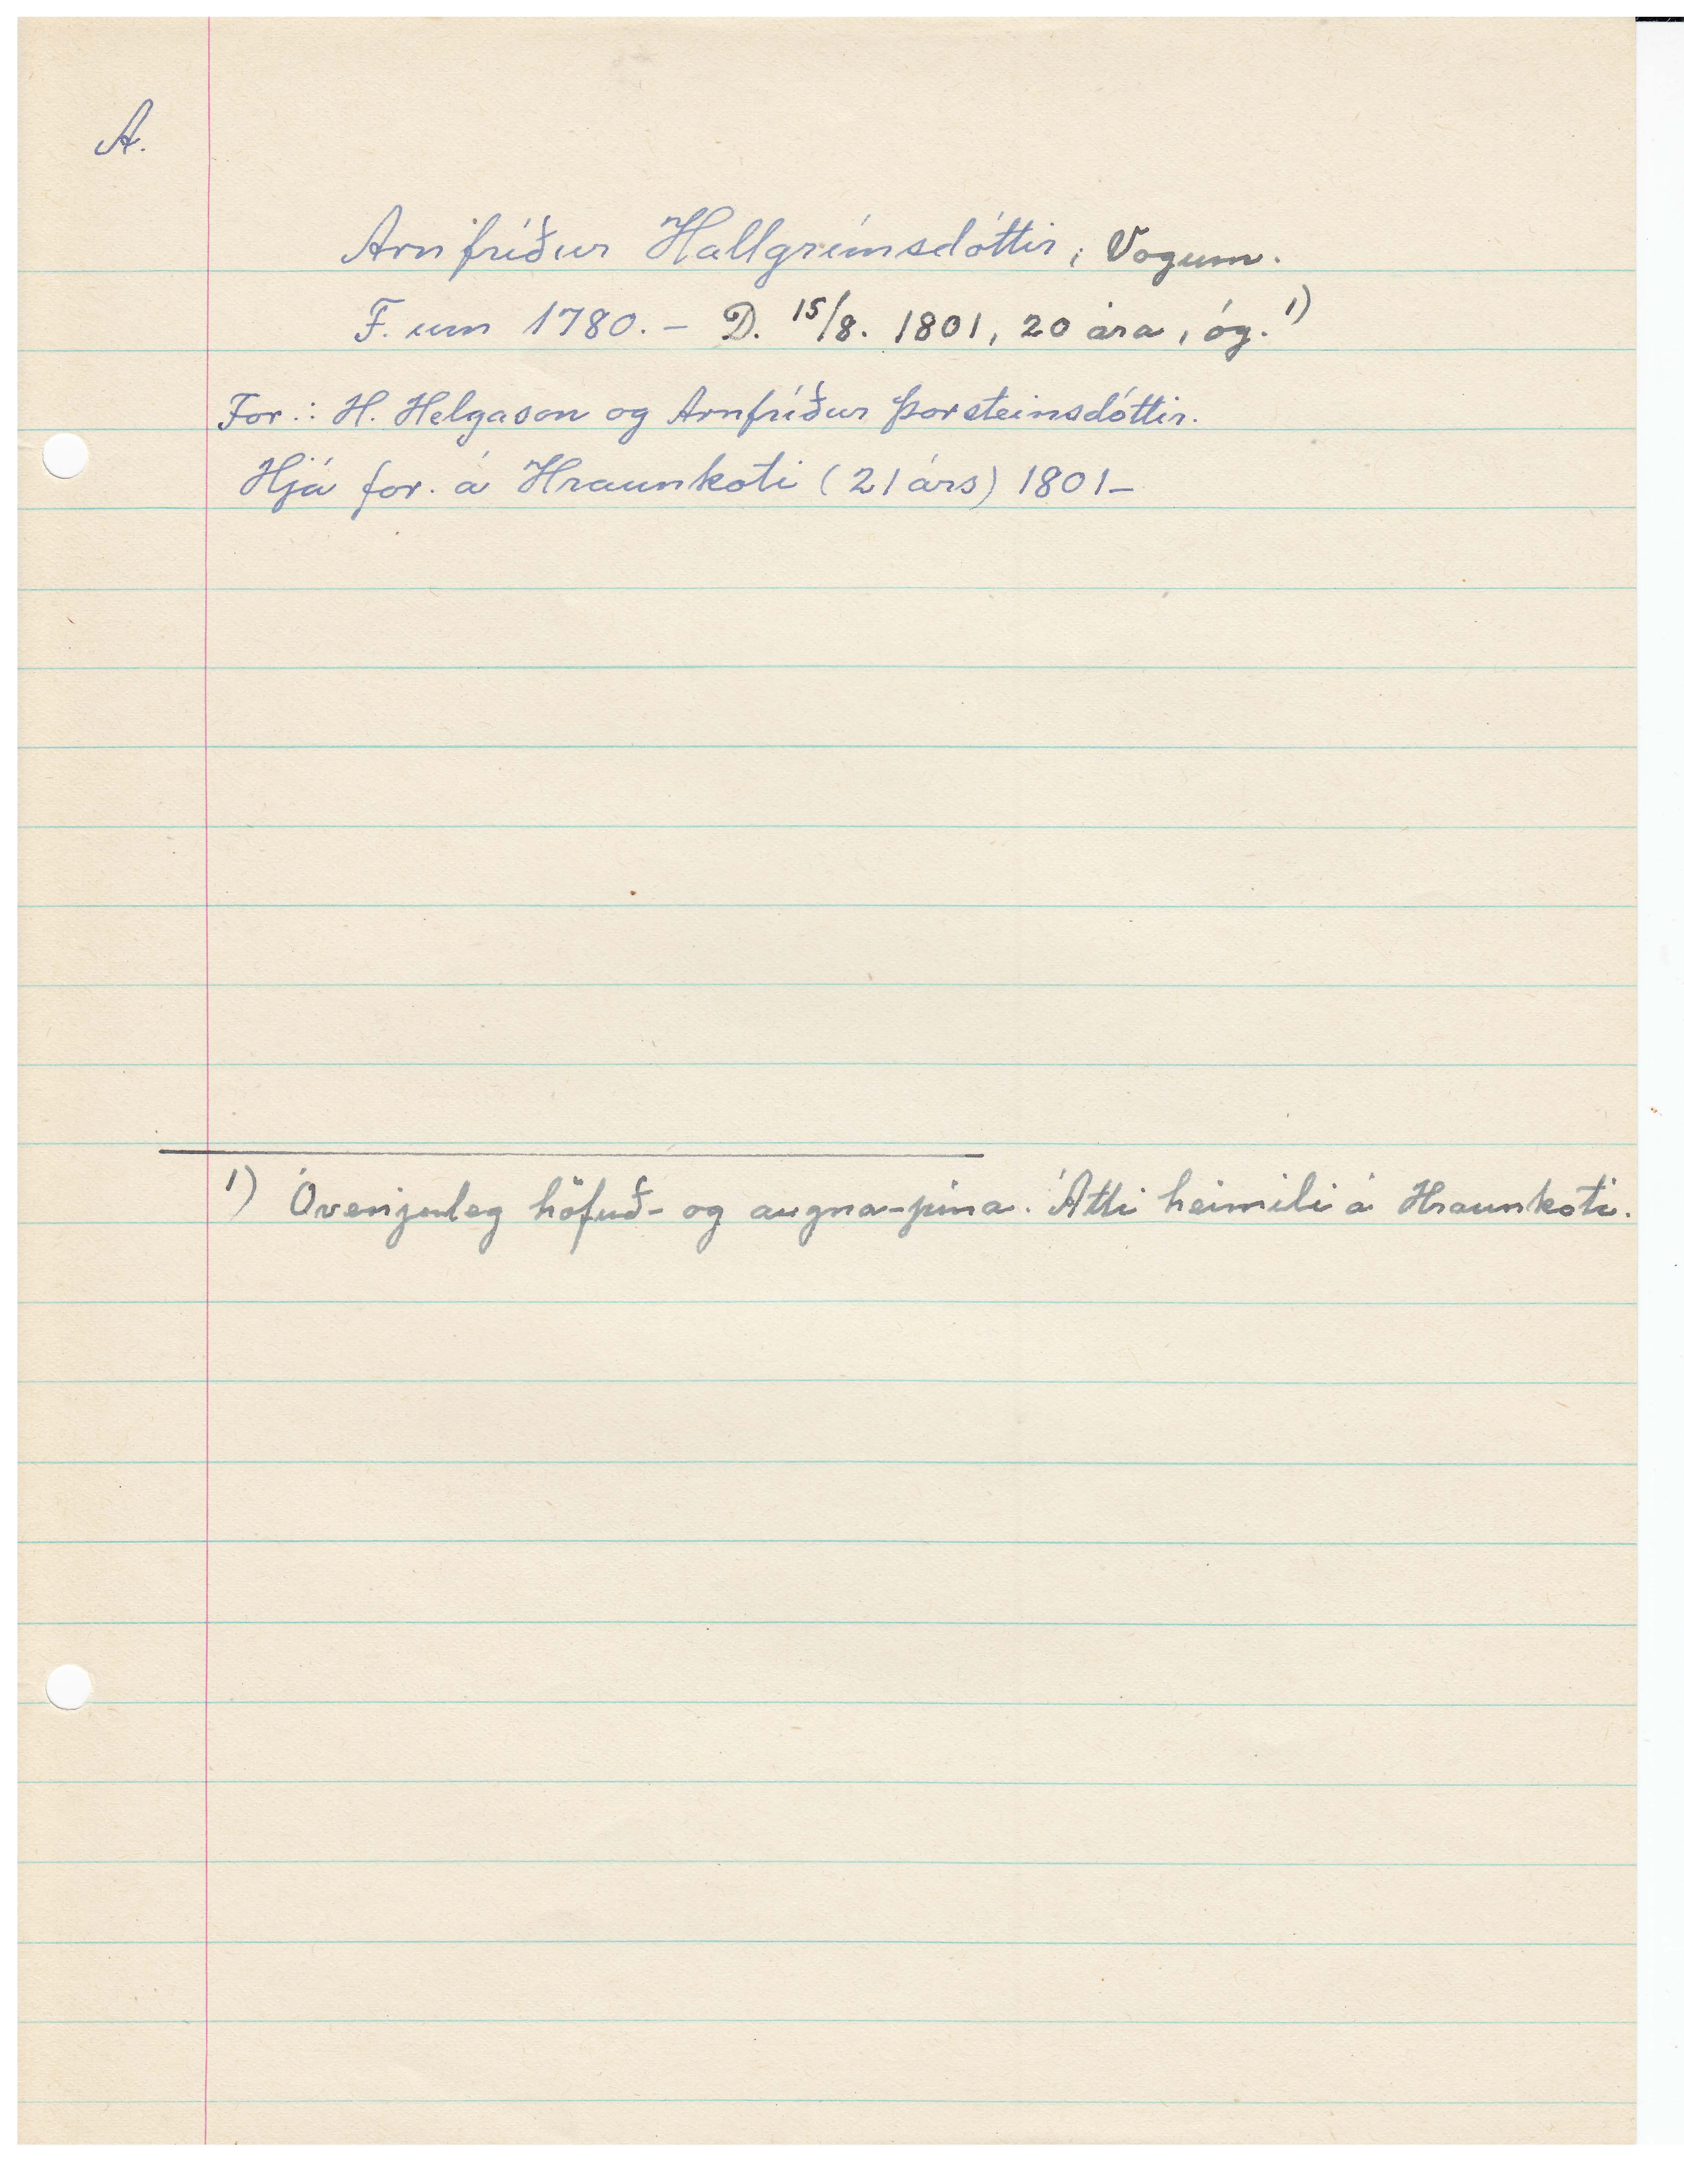 A.
Arnfríður Hallgrímsdóttir, Vogum.
F. um 1780. - D. 15/8. 1801, 20 ára, óg. 1)
For.: H. Helgason og Arnfríður Þorsteinsdóttir.
Hjá for. á Hraunkoti (21 árs) 1801-
1) Óvenjuleg höfuð- og augna-pína. Átti heimili á Hraunkoti.